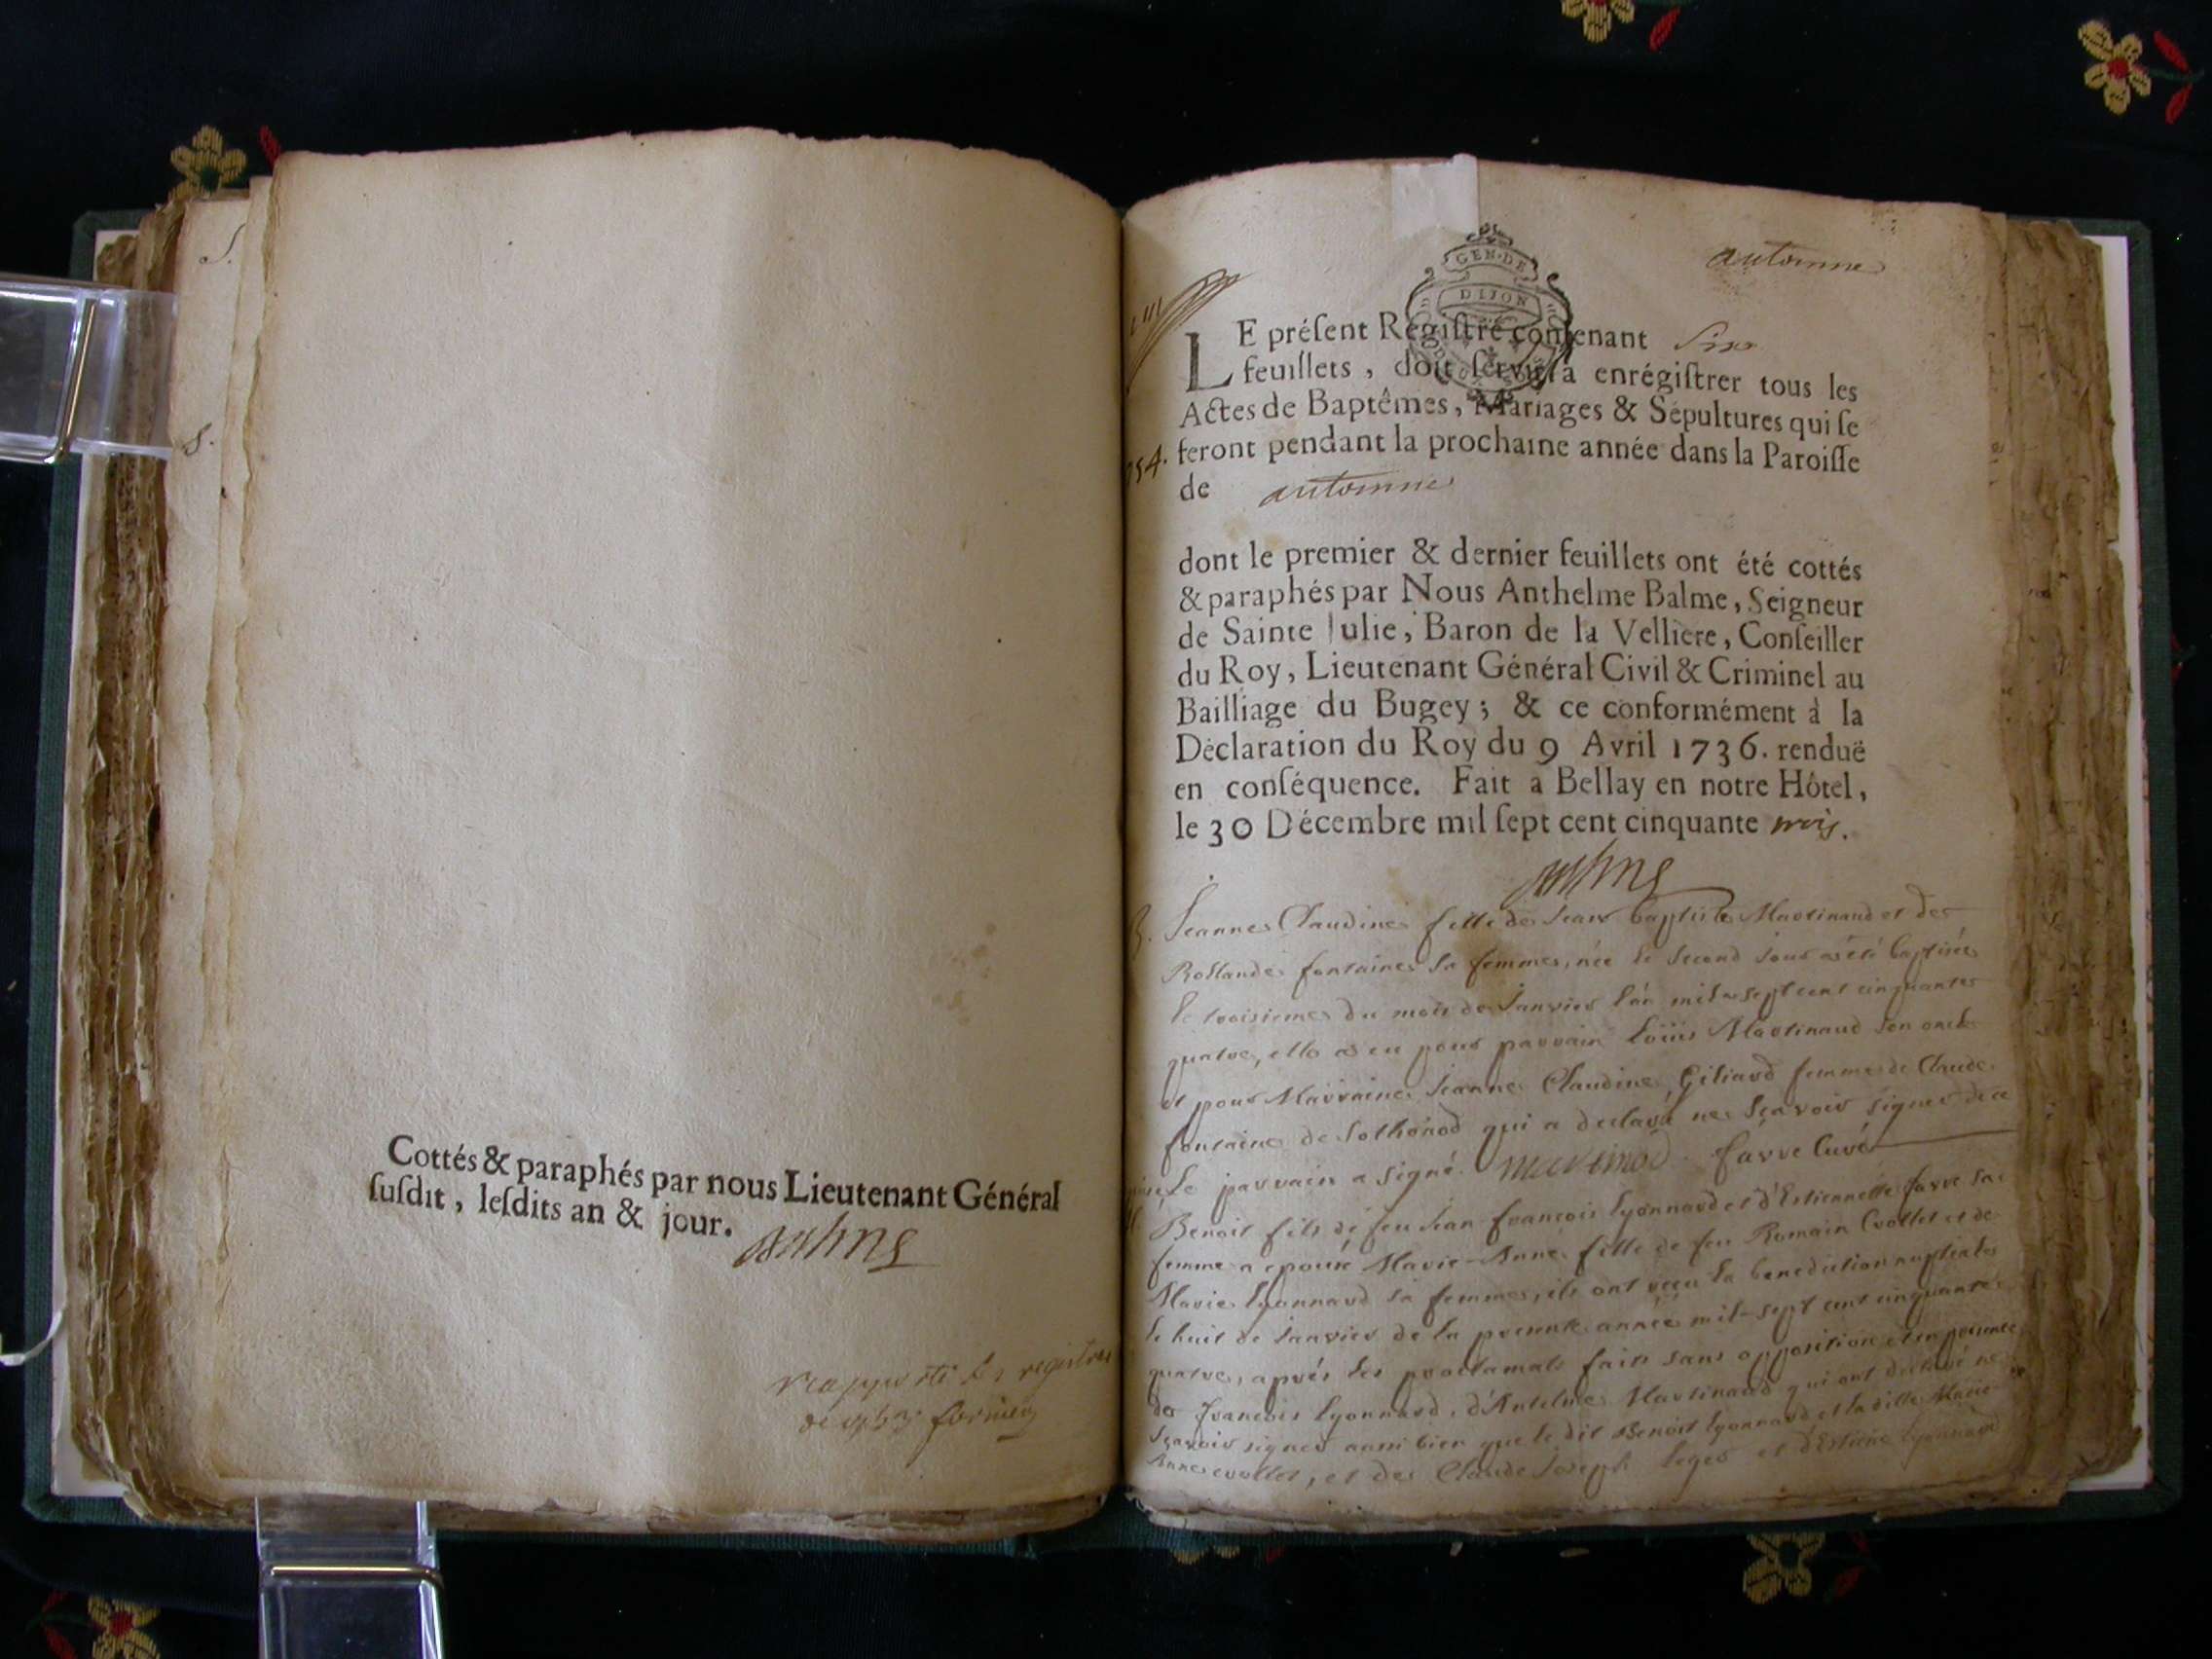 Cottés & paraphés par nous Lieutenant Général
ſuſdit, leſdits an & jour.
automne
GEN·DE
DIJON
LE préſent Régiſtre contenant Six
feuillets, doit ſervir à enrégiſtrer tous les
Actes de Baptêmes, Mariages & Sépultures qui ſe
feront pendant la prochaine année dans la Paroiſſe
de automne
dont le premier & dernier feuillets ont été cottés
& paraphés par Nous Anthelme Balme, Seigneur
de Sainte Julie, Baron de la Velliere, Conſeiller
du Roy, Lieutenant Général Civil & Criminel au
Bailliage du Bugey; & ce conformément à la
Déclaration du Roy du 9 Avril 1736. renduë
en conſéquence. Fait à Bellay en notre Hôtel,
le 30 Décembre mil ſept cent cinquante trois.
Jeanne Claudine fille de Jean baptiste Martinand et de
Rollande fontaine sa femme, née le second jour a été baptisée
le troisieme du mois de Janvier l'an mil sept cent cinquante
quatre, elle a eu pour parrain Loüis Martinand son oncle
et pour Marraine Jeanne Claudine Giliard femme de Claude
fontaine de Sothonod qui a declaré ne sçavoir signer de ce
le parrain a signé. Martinod favre Curé
Benoit fils de feu Jean francois Lyonnard et d'Estiennette favre sa
femme a epousé Marie-Anne fille de feu Romain Crollet et de
Marie Lyonnard sa femme, ils ont reçu la benediction nuptiale
le huit de Janvier de la presente année mil-sept cent cinquante
quatre, aprés les proclamats faits sans opposition et en presence
de francois Lyonnard, d'Antelme Martinand qui ont declaré ne
sçavoir signer aussi bien que le dit Benoit Lyonnard et la ditte Marie
Anne crollet, et de Claude Joseph Leger et d'Estiene Lyonnard